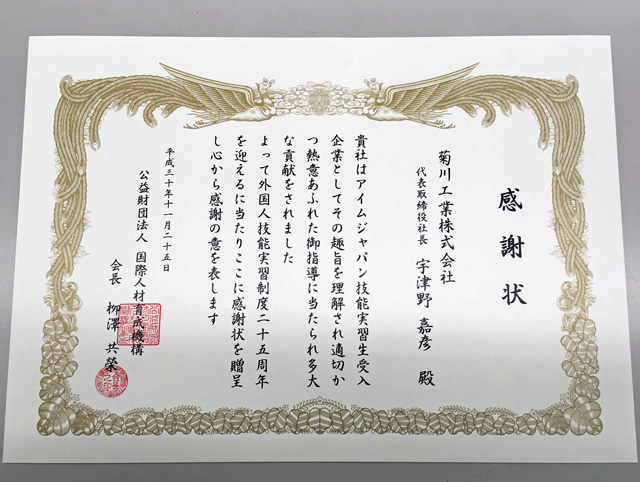 感謝状
菊川工業株式会社
代表取締役社長 宇津野 嘉彦 殿
貴社はアイムジャパン技能実習生受入
企業としてその趣旨を理解され適切か
つ熱意あふれた御指導に当たられ多大
な貢献をされました
よって外国人技能実習制度二十五周年
を迎えるに当たりここに感謝状を贈呈
し心から感謝の意を表します
平成三十年十一月二十五日
公益財団法人 国際人材育成機構
会長 柳澤 共榮